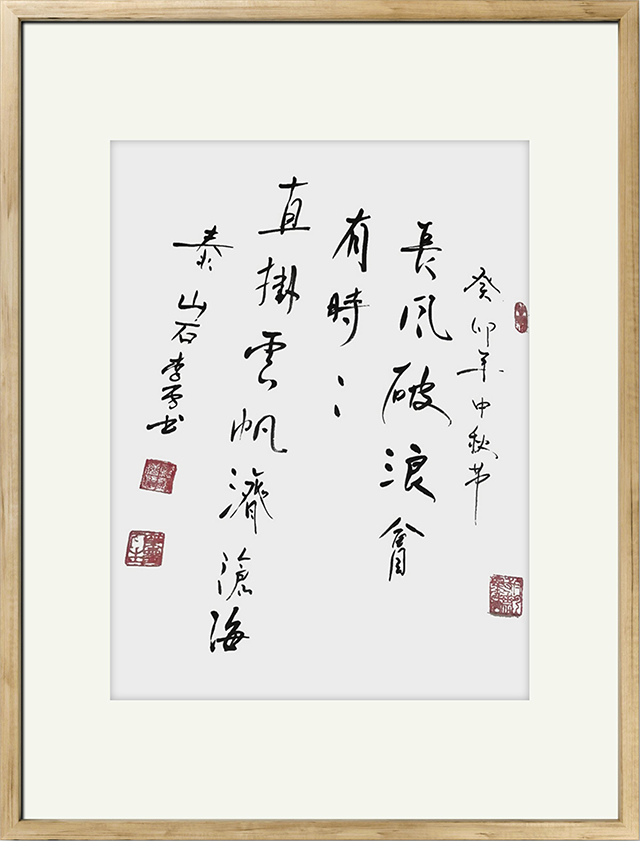 癸卯年中秋节
長风破浪會
有時〻
直掛雲帆濟滄海
泰山石李书